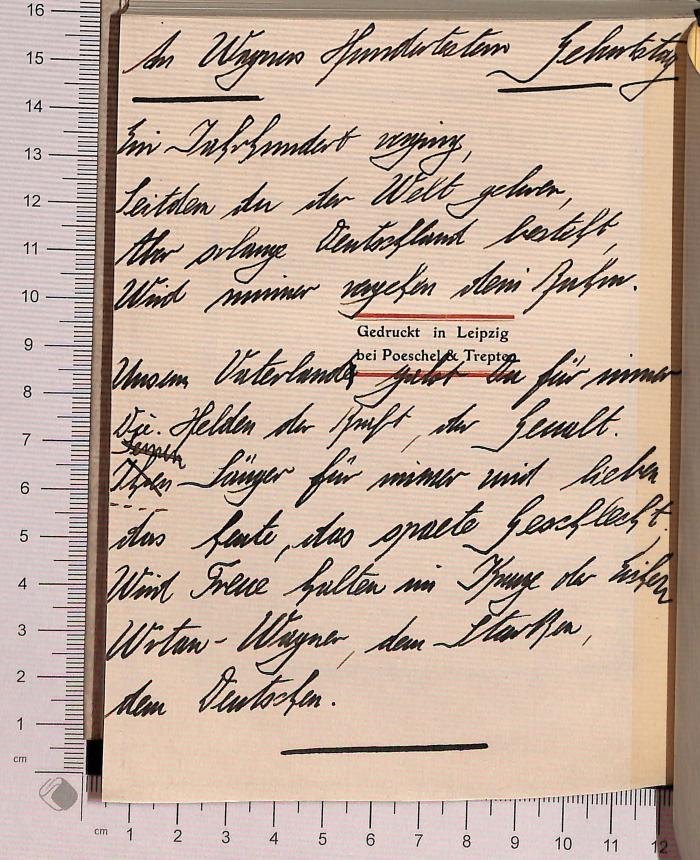 An Wagners Hundertestem Geburtstag
Ein Jahrhundert verging,
Seitdem du der Welt geboren,
Aber solange Deutschland besteht,
Wird nimmer vergehen dein Ruhm.
Gedruckt in Leipzig
bei Poeschel & Trepte
Unserm Vaterlande gabst Du für immer
Die Helden der Kraft, der Gewalt.
Seinen
Sänger für immer wird lieben
das heute, das spaete Geschlecht.
Wird Treue halten im Kreuze der
Wotan-Wagner, dem Starken,
dem Deutschen.
16
15
14
13
12
11
10
9
8
7
6
5
4
3
2
1
cm
cm 1 2 3 4 5 6 7 8 9 10 11 12